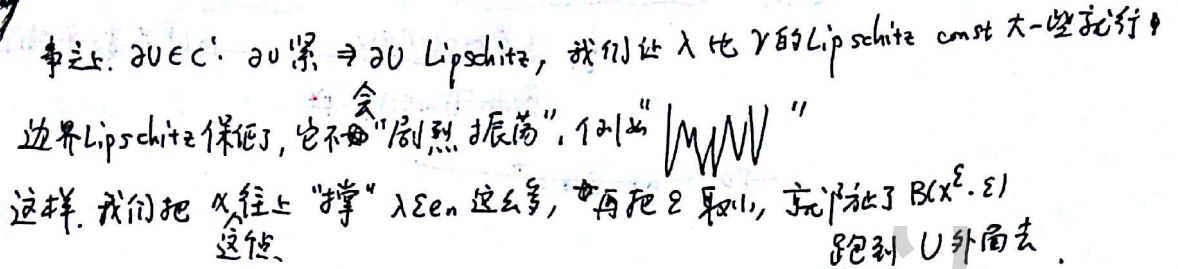 事实上. ∂U∈C¹. ∂U紧 ⇒ ∂U Lipschitz, 我们让 λ 比 γ的Lipschitz const 大一些就行.
边界Lipschitz保证了, 它不会"剧烈振荡", 例如" "
这样. 我们把 x这个点往上 "撑" λεeₙ 这么多, 再把 ε 取小, 就防止了 B(x^ε, ε)
跑到 U 外面去.